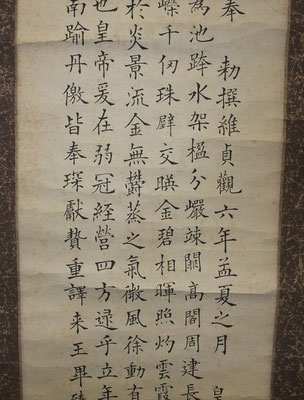 奉 勅撰維貞觀六年孟夏之月 皇
為池跨水架楹分巖竦闕高閣周建長
嶸千仞珠璧交暎金碧相暉照灼雲霞
於炎景流金無鬱蒸之氣微風徐動有
也皇帝爰在弱冠経營四方逮乎立年
南踰丹儌皆奉琛獻贄重譯来王畢